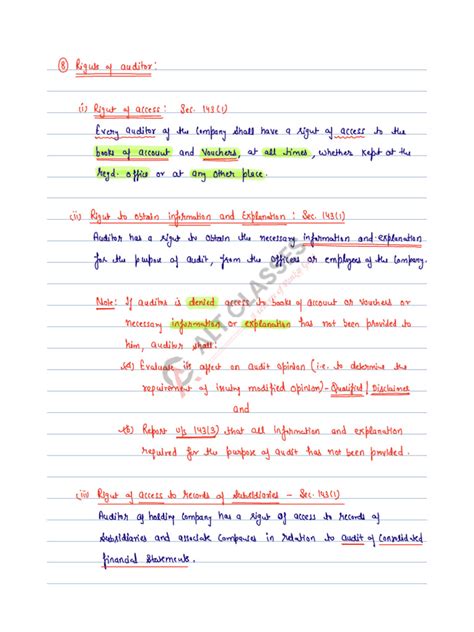 ⑧ Rights of auditor:
(i) Right of access: Sec. 143(1)
Every auditor of the Company shall have a right of access to the
books of account and vouchers, at all times, whether kept at the
regd. office or at any other place.
(ii) Right to obtain information and Explanation: Sec. 143(1)
Auditor has a right to obtain the necessary information and explanation
for the purpose of audit, from the officers or employees of the Company.
Note: If auditor is denied access to books of account or vouchers or
necessary information or explanation has not been provided to
him, auditor shall:
(a) Evaluate its affect on audit opinion (i.e. to determine the
requirement of issuing modified opinion) - Qualified / Disclaimer
and
(b) Report u/s 143(3) that all information and explanation
required for the purpose of audit has not been provided.
(iii) Right of access to records of subsidiaries - Sec. 143(1)
Auditor of holding Company has a right of access to records of
subsidiaries and associate Companies in relation to audit of Consolidated
financial statements.
ALT CLASSES